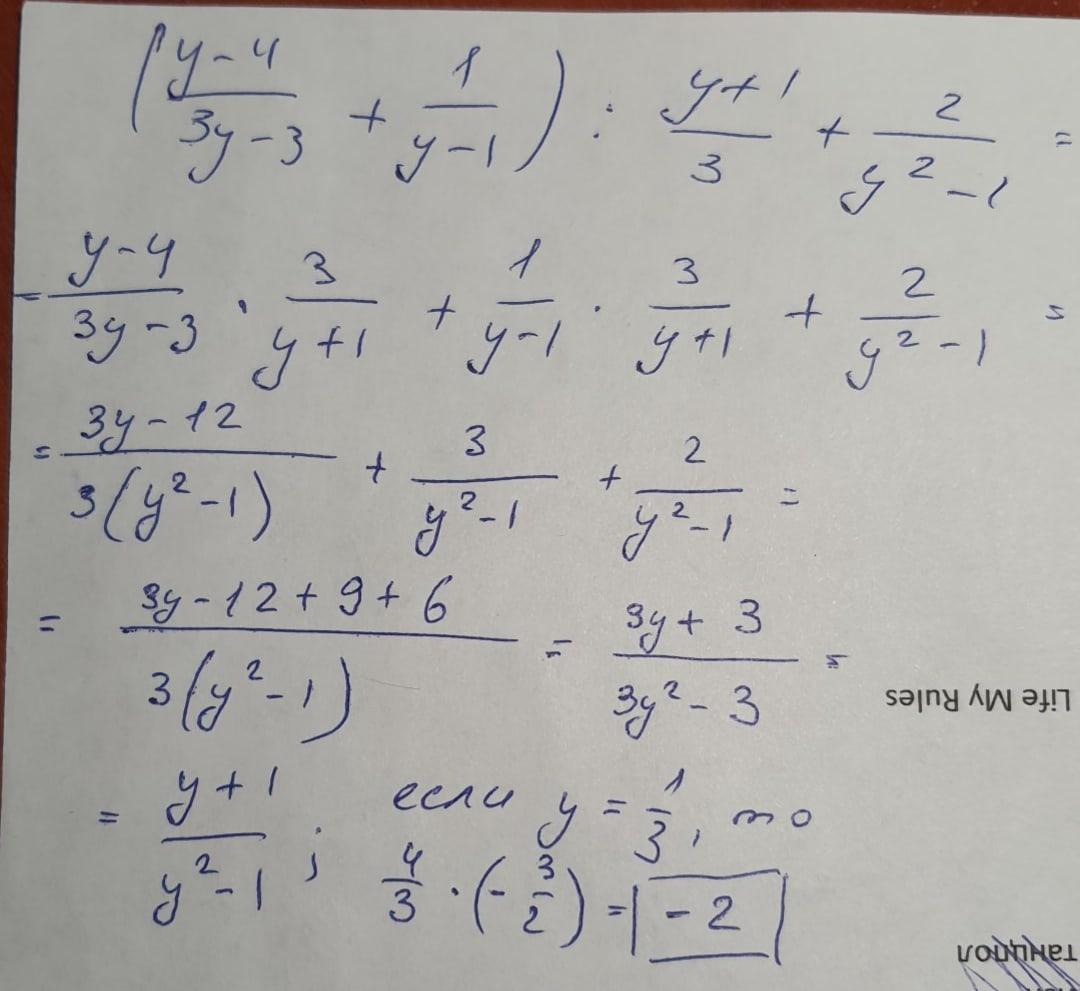 (y-4/3y-3 + 1/y-1) : y+1/3 + 2/y²-1 =
= y-4/3y-3 · 3/y+1 + 1/y-1 · 3/y+1 + 2/y²-1 =
= 3y-12/3(y²-1) + 3/y²-1 + 2/y²-1 =
= 3y-12+9+6/3(y²-1) = 3y+3/3y²-3 =
= y+1/y²-1 ; если y = 1/3, то
4/3 · (-3/2) = -2
Life My Rules
танцпол